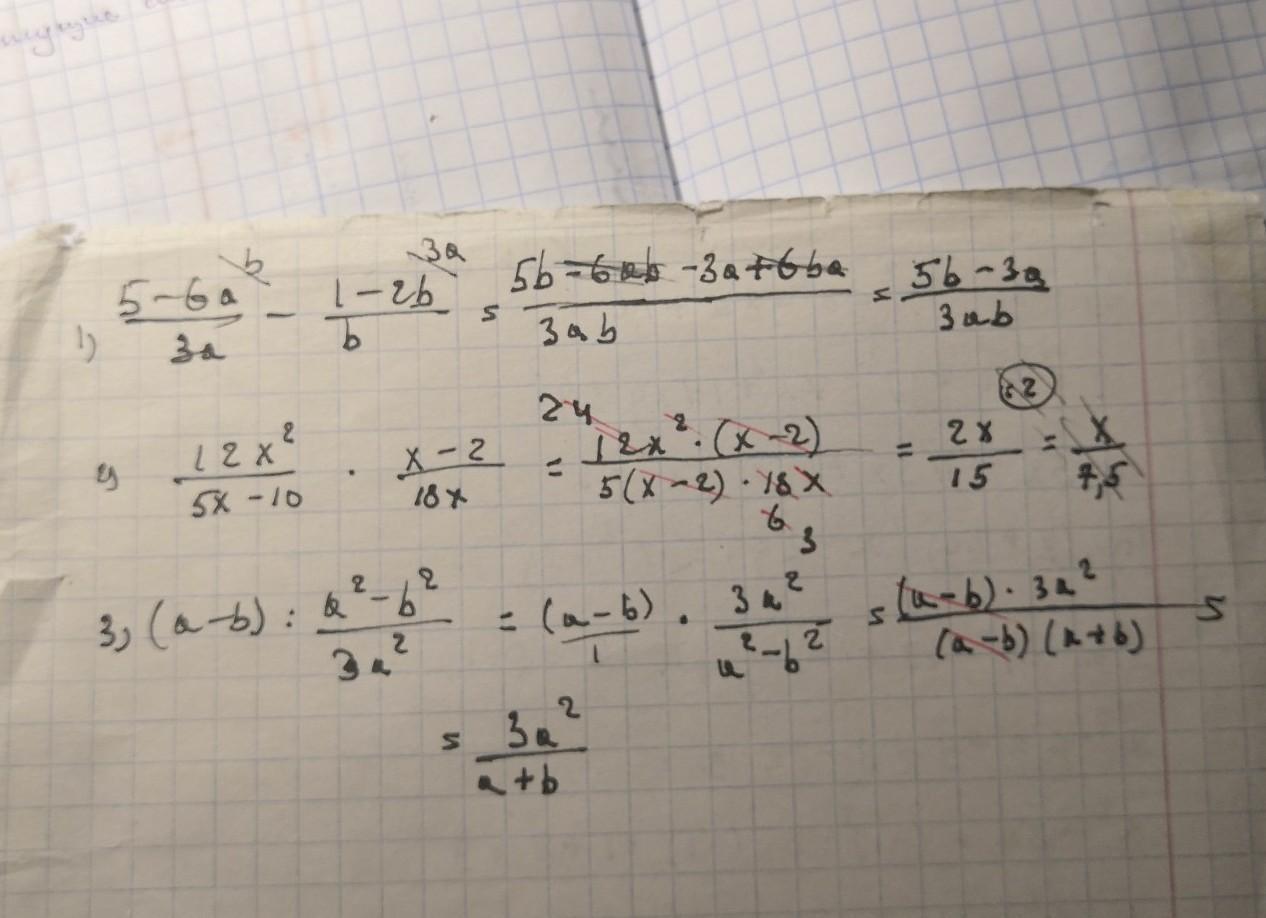 1) (5-6a)/(3a) ^b - (1-2b)/b ^3a = (5b-6ab-3a+6ba)/(3ab) = (5b-3a)/(3ab)
2) (12x²)/(5x-10) · (x-2)/(18x) = (12x²·(x-2))/(5(x-2)·18x) 2 4 6 3 = (2x)/15 :2 = x/7,5
3) (a-b) : (a²-b²)/(3a²) = (a-b)/1 · (3a²)/(a²-b²) = ((a-b)·3a²)/((a-b)(a+b)) =
= (3a²)/(a+b)